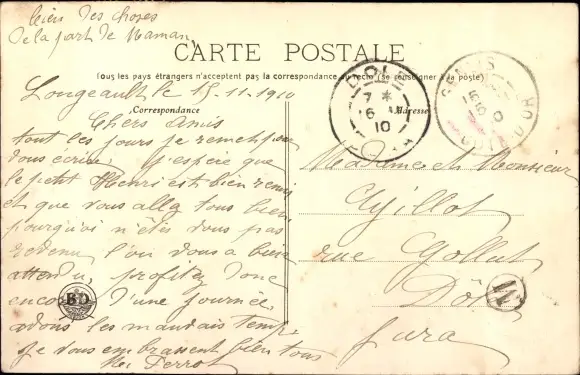 bien des choses
de la part de Maman
CARTE POSTALE
Tous les pays étrangers n'acceptent pas la correspondance au recto (se renseigner à la poste)
Longeault le 15.11.1910
Correspondance
Adresse
Chers Amis
tout les jours je remet pour
vous écrire j'espère que
le petit Henri est bien remis
et que vous allez tous bien
pourquoi n'êtes vous pas
revenu l'on vous a bien
attendu, profitez donc
encore d'une journée
avons les mauvais temps
je vous embrassent bien tous
Perrot
Madame et Monsieur
rue Gollut
Dôle
Jura
DOLE
7 *
16
10
COTE D'OR
BD